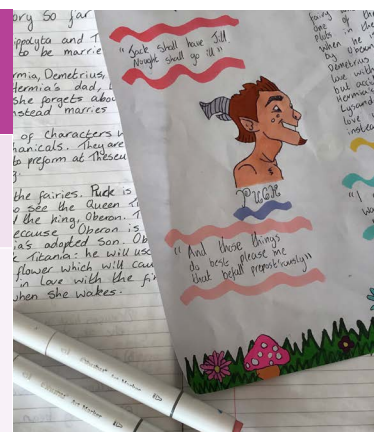 ory so far
ippolyta and T
to be marrie
rmia, Demetrius,
Hermia's dad,
she forgets abou
stead marries
of characters w
hanicals. They are
to preform at Theseu
the fairies. Puck is
o see the Queen Ti
the king, Oberon. T
ecause Oberon is
ia's adopted son. Ob
Titania: he will use
flower which will cau
in love with the fir
when she wakes.
"Jack shall have Jill.
Nought shall go ill"
PUCK
"And those things
do best please me
that befall prepost'rously"
fairy
one of th
puts in the
when he is
by Oberon
Demetrius
love with
but acc
Hermia's
Lysand
love
instea
"I
wa